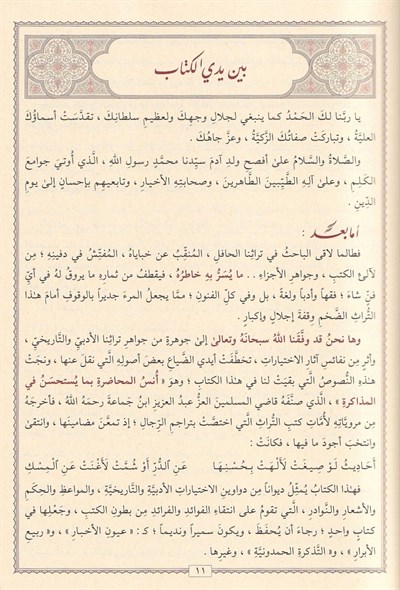 بين يدي الكتاب
يا ربَّنا لكَ الحَمْدُ كما ينبغي لجلالِ وجهِكَ ولعظيمِ سلطانِكَ ، تقدَّسَتْ أسماؤُكَ
العليَّةُ ، وتباركَتْ صفاتُكَ الزَّكيَّةُ ، وعزَّ جاهُكَ .
والصَّلاةُ والسَّلامُ علىٰ أفصحِ ولدِ آدمَ سيِّدِنا محمَّدٍ رسولِ اللهِ ، الَّذي أُوتيَ جوامعَ
الكَلِمِ ، وعلىٰ آلِهِ الطَّيِّبينَ الطَّاهرينَ ، وصحابتِهِ الأخيارِ ، وتابعيهِم بإحسانٍ إلىٰ يومِ
الدِّينِ .
أما بعد :
فطالما لاقى الباحثُ في تراثِنا الحافلِ ، المُنقِّبُ عن خباياهُ ، المُفتِّشُ في دفينِهِ ؛ مِنْ
لآلئِ الكتبِ ، وجواهرِ الأجزاءِ . . ما يُسَرُّ بهِ خاطرُهُ ، فيقطفُ من ثمارِهِ ما يروقُ لهُ في أيِّ
فنٍّ شاءَ ؛ فقهاً وأدباً ولغةً ، بل وفي كلِّ الفنونِ ؛ ممَّا يجعلُ المرءَ جديراً بالوقوفِ أمامَ هذا
التُّراثِ الضَّخمِ وقفةَ إجلالٍ وإكبارٍ .
وها نحنُ قد وفَّقَنا اللهُ سبحانَهُ وتعالىٰ إلىٰ جوهرةٍ من جواهرِ تراثِنا الأدبيِّ والتَّاريخيِّ ،
وأثرٍ مِن نفائسِ آثارِ الاختياراتِ ، تخطَّفَتْ أيدي الضَّياعِ بعضَ أصولِهِ الَّتي نقلَ عنها ، ونجَتْ
هذهِ النُّصوصُ الَّتي بقيَتْ لنا في هذا الكتابِ ؛ وهوَ « أُنسُ المحاضرةِ بما يُستحسَنُ في
المذاكرةِ » ، الَّذي صنَّفَهُ قاضي المسلمينَ العزُّ عبدُ العزيزِ ابنُ جماعةَ رحمَهُ اللهُ ، فأخرجَهُ
مِن مرويَّاتِهِ لأُمَّاتِ كتبِ التُّراثِ الَّتي اختصَّتْ بتراجمِ الرِّجالِ ؛ إذ تمعَّنَ مضامينَها ، وانتقىٰ
وانتخبَ أجودَ ما فيها ، فكانَتْ :
أَحَادِيثُ لَوْ صِيغَتْ لَأَلْهَتْ بِحُسْنِهَا عَنِ الدُّرِّ أَوْ شُمَّتْ لَأَغْنَتْ عَنِ الْمِسْكِ
فهٰذا الكتابُ يُمثِّلُ ديواناً مِن دواوينِ الاختياراتِ الأدبيَّةِ والتَّاريخيَّةِ ، والمواعظِ والحِكَمِ
والأشعارِ والنَّوادرِ ، الَّتي تقومُ على انتقاءِ الفوائدِ والفرائدِ مِن بطونِ الكتبِ ، وجَعْلِها في
كتابٍ واحدٍ ؛ رجاءَ أن يُحفَظَ ، ويكونَ سميراً ونديماً ؛ كـ : « عيونِ الأخبارِ » ، و« ربيعِ
الأبرارِ » ، و« التَّذكرةِ الحمدونيَّةِ » ، وغيرِها .
١١